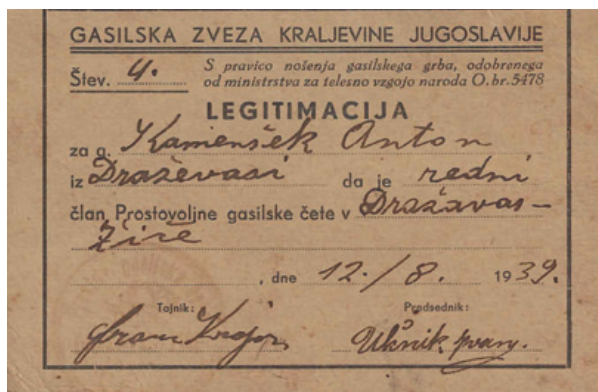 GASILSKA ZVEZA KRALJEVINE JUGOSLAVIJE
Štev. 4. S pravico nošenja gasilskega grba, odobrenega
od ministrstva za telesno vzgojo naroda O. br. 5478
LEGITIMACIJA
za g. Kamenšek Anton
iz Draževasi da je redni
član Prostovoljne gasilske čete v Dražavas-
Žiče
, dne 12./8. 1939.
Tajnik: Predsednik:
Franc